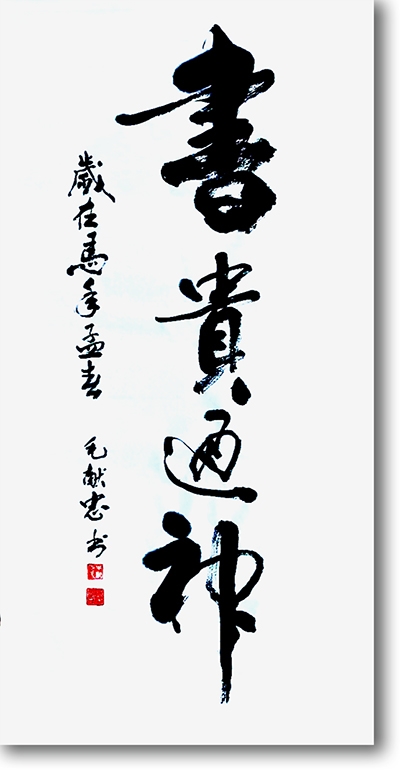 書貴通神
歲在馬年孟春 毛献忠书